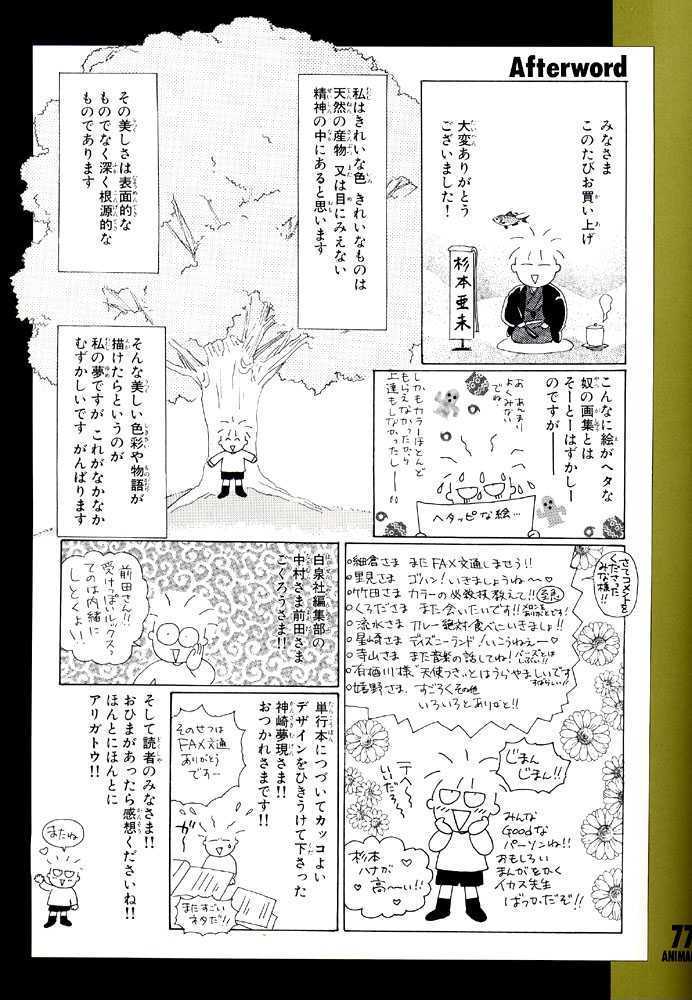 Afterword
みなさま
このたびお買い上げ
大変ありがとう
ございました!
杉本亜未
私はきれいな色 きれいなものは
天然の産物 又は目にみえない
精神の中にあると思います
その美しさは表面的な
ものでなく深く根源的な
ものであります
そんな美しい色彩や物語が
描けたらというのが
私の夢ですが これがなかなか
むずかしいです がんばります
こんなに絵がヘタな
奴の画集とは
そーとーはずかしー
のですが――
お、あんまり
よくみない
でね
しかもカラーほとんど
もらえなかったから
上達もしなかったしー
ヘタッピな絵…
さてコメントを
くださった
みな様!!
○細倉さま またFAX文通しませう!!
○里見さま ゴハン!いきましょうね〜♡
○竹田さま カラーの必殺技教えて!!
○くろださま また会いたいです!!メロンを
ありがとうです!
○流水さま カレー絶対食べにいきましょ!!
○星崎さま ディズニーランド!いこうねえー♡
○寺山さま また音楽の話してね!
○有栖川様 "天使つき"とはうらやましいです
すばらしい!!
○嬉野さま すごろくその他
いろいろとありがと!!
じまん
じまん!!
みんな
Goodな
パーソンね!!
おもしろい
まんがをかく
イカス先生
ばっかだぞ!!
杉本
ハナが
高〜い!!
白泉社編集部の
中村さま前田さま
ごくろうさま!!
前田さん!!
受けっぽいルックス〜
てのは内緒に
しとくよい
単行本につづいてカッコよい
デザインをひきうけて下さった
神崎夢現さま!!
おつかれさまです!!
そのせつは
FAX文通
ありがとう
です…
またすごい
ネタだ!!
そして読者のみなさま!!
おひまがあったら感想くださいね!!
ほんとにほんとに
アリガトウ!!
またね
77
ANIMAL